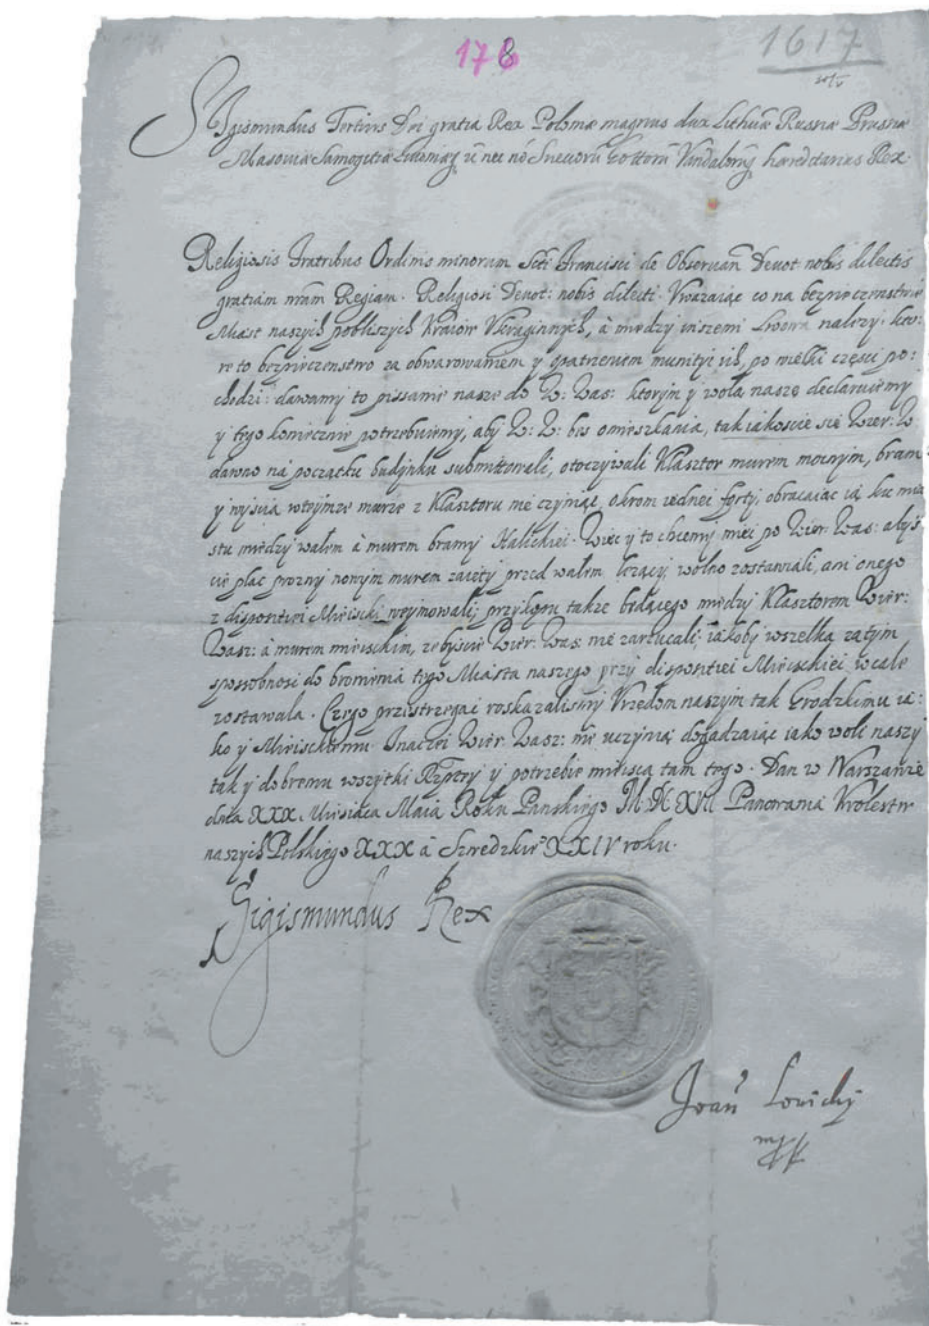 178
1617
Sigismundus Tertius Dei gratia Rex Poloniæ magnus dux Lithuæ Russiæ Prussiæ
Masoviæ Samogitiæ Livoniæq nec nō Suecorū Gottorū Vandalorūq hæreditarius Rex.
Religiosis Fratribus Ordinis minorum Scti Francisci de Observan Devot nobis dilectis
gratiam nrām Regiam. Religiosi Devot: nobis dilecti. Vwazaiąc co na bezpieczenstwie
Miast naszych pobliszych Kraiow Vkraginnych, à miedzy inszemi Lwowa nalezy, kto:
re to bezpieczenstwo za obwarowaniem y opatrzeniem munityi ich, po wielki części po:
chodzi: dawamy to pissanie nasze do W: Was: ktorym y wolą naszę declaruiemy
y tego koniecznie potrzebuiemy, aby W: W: bes omieszkania, tak iakoscie się Wier: W
dawno na początku budynku submittowali, otoczywali Klasztor murem mocnym, bram
y wyscia wteymze murze z Klasztoru nie czyniąc, okrom iednei forty, obracaiac ią ku mia
stu miedzy wałem à murem bramy Halickiei. Wiec y to chcemy miec po Wier: Was: abys
cie plac prozny nowym murem zaięty przed wałem lezący, wolno zostawiali, ani onego
z dispositiei Mieiscki weymowali; przykopu takze będącego miedzy Klasztorem Wier:
Wasz: à murem mieisckim, zebyscie Wier: Was: nie zarzucali, iakoby wszelka zatym
sposobnosc do bronienia tego Miasta naszego przy dispositiei Mieisckiei wcale
zostawala. Czego przestrzegać roskazalismy Vrzędom naszym tak Grodzkimu ia:
ko y Mieisckiemu. Inaczei Wier: Wasz: nie uczynią dogadzaiąc iako woli naszy
tak y dobremu wszytki Rzptey y potrzebie mieisca tam tego. Dan w Warszawie
dnia XXX. Miesiąca Maia Roku Panskiego M.DCXVII Panowania Krolestw
naszych Polskiego XXX à Szwedzkie° XXIV roku.
Sigismundus Rex
Joan̄ Lowicky
mpp